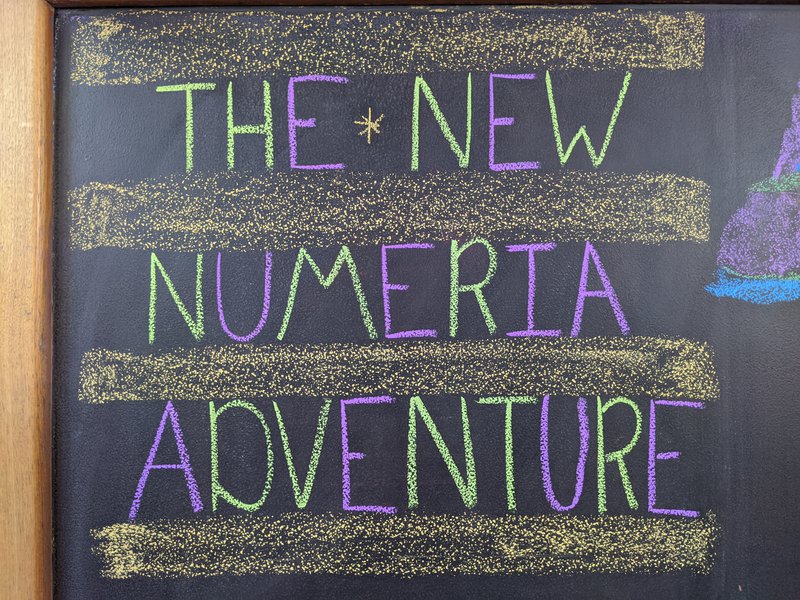 THE * NEW
NUMERIA
ADVENTURE